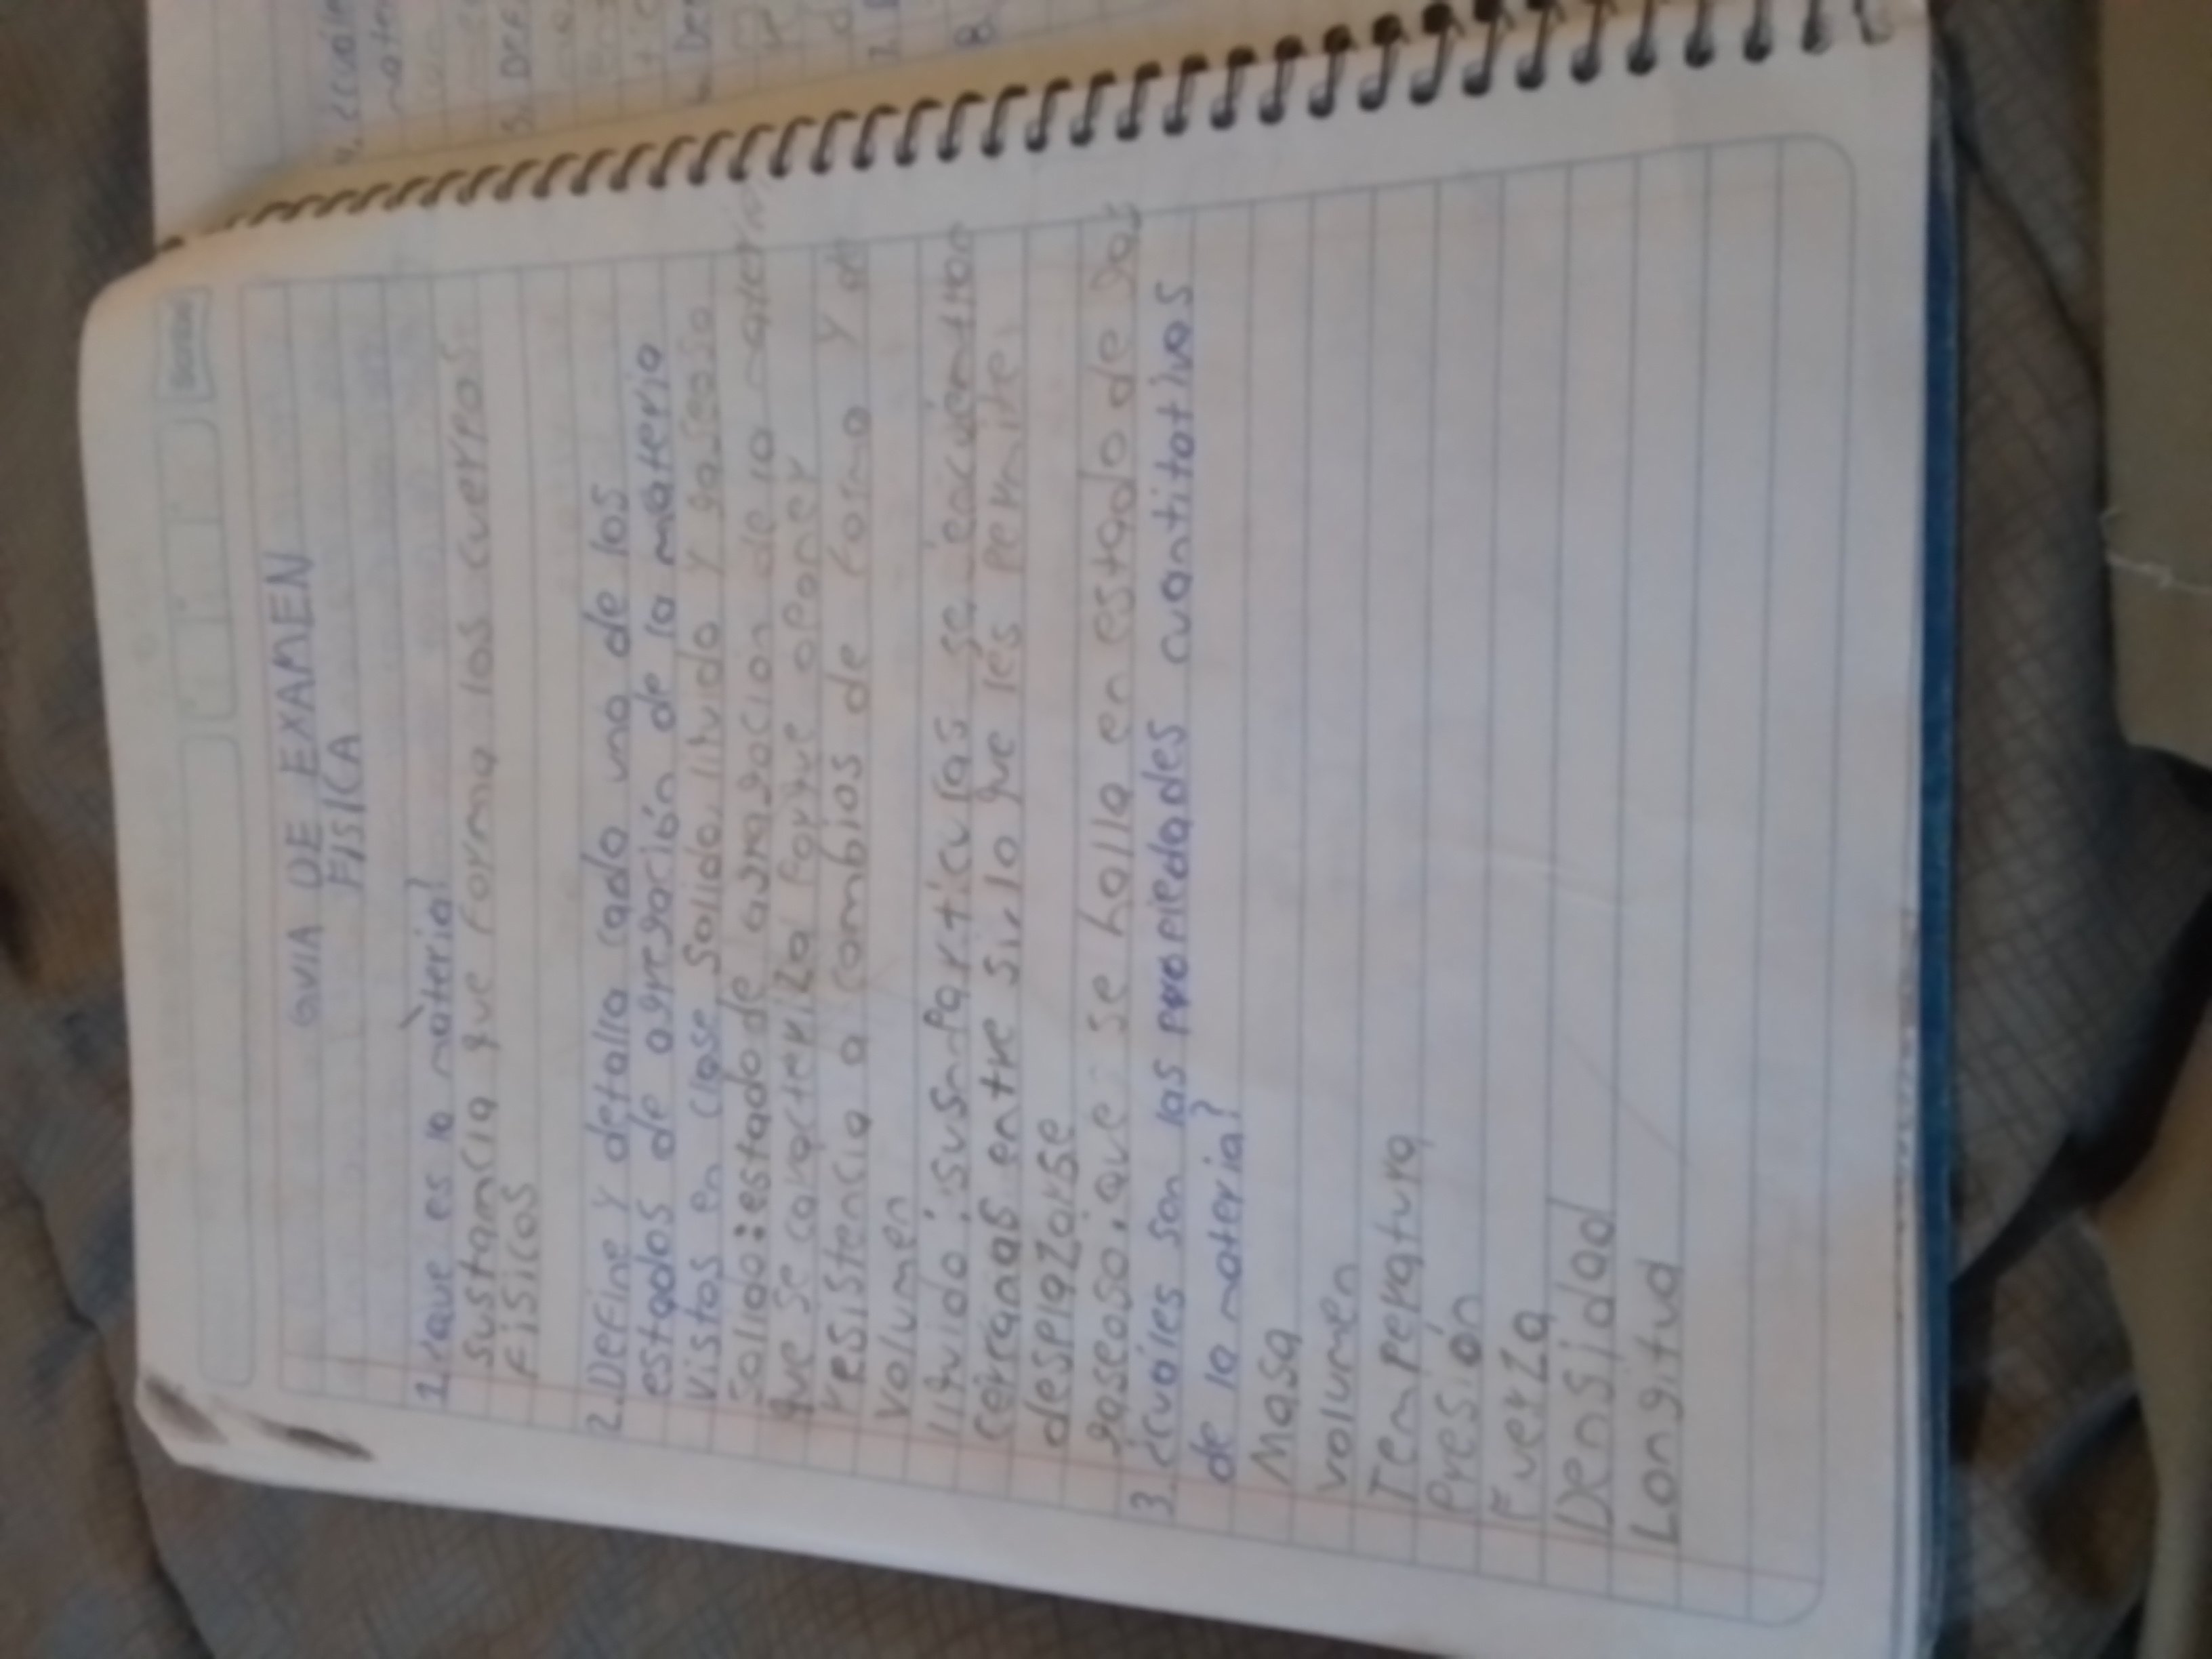 GUIA DE EXAMEN
FISICA
1. ¿que es la materia?
sustancia que forma los cuerpos
Fisicos
2. Define y detalla cada una de los
estados de agregación de la materia
vistos en clase solido, lituido y gaseoso
Solido: estado de agragacion de la materia
que se caracteriza porque oponer
resistencia a cambios de forma y de
volumen
lituido: susn particulas se encuentran
cercanas entre si, lo que les permite
desplazarse
gaseoso: que se halla en estado de gas
3. ¿cuáles son las propiedades cuantitativas
de la materia?
Masa
volumen
Temperatura
Presión
Fuerza
Densidad
Longitud